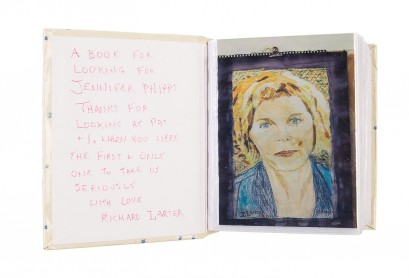 A BOOK FOR
LOOKING FOR
JENNIFER PHIPPS
THANKS FOR
LOOKING AT PAT
+ I, WHEN YOU WERE
THE FIRST & ONLY
ONE TO TAKE US
SERIOUSLY
WITH LOVE
RICHARD LARTER